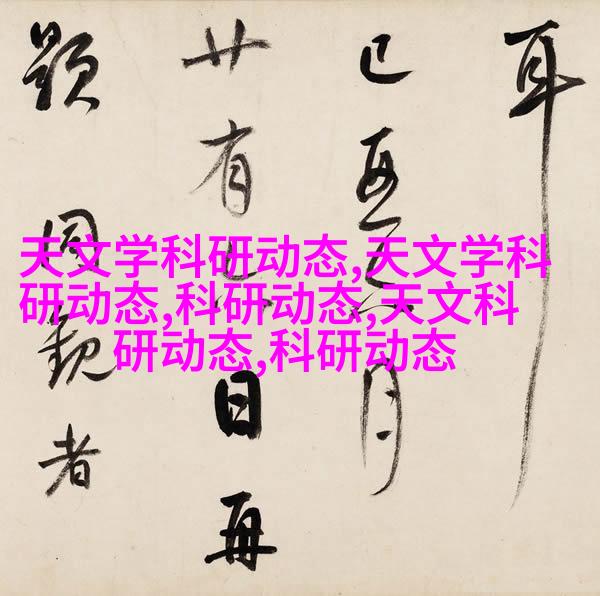 耳
己亥月
廿有日再
題同觀者
天文学科研动态,天文学科
研动态,科研动态,天文科
研动态,科研动态